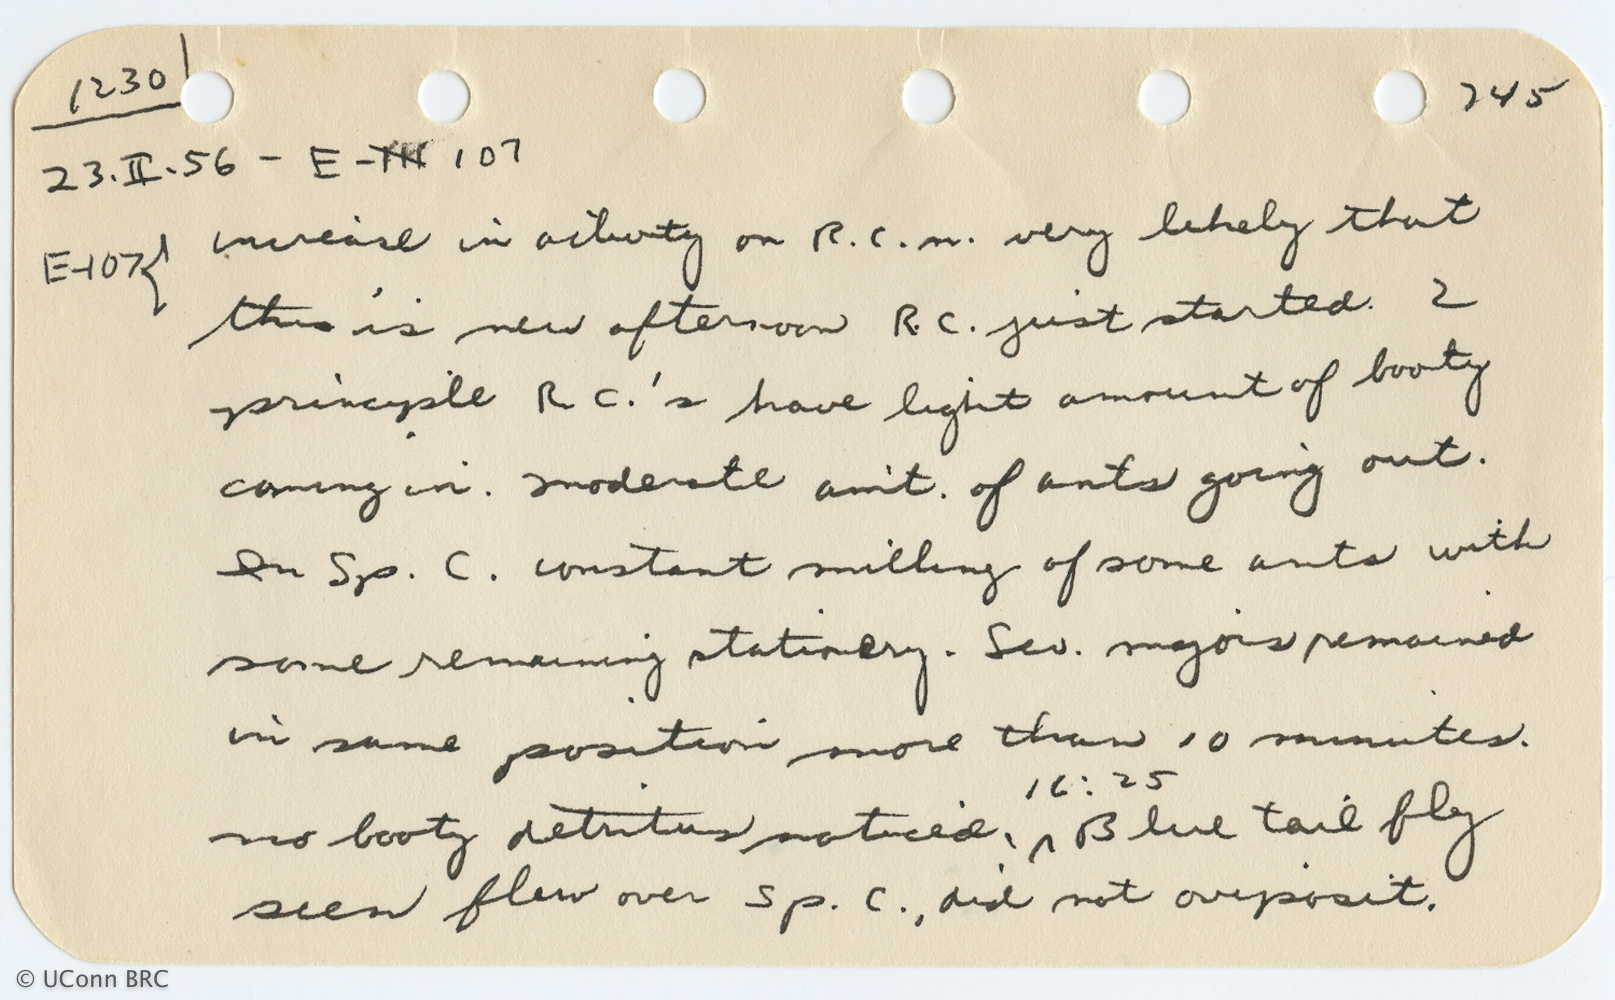 1230
745
23.II.56 - E-III 107
E-107{
increase in activity on R.C.n. very likely that
this is new afternoon R.C. just started. 2
principle R.C.'s have light amount of booty
coming in. moderate amt. of ants going out.
In Sp. C. constant milling of some ants with
some remaining stationery. Sev. majors remained
in same position more than 10 minutes.
16:25
no booty detritus noticed. ^ Blue tail fly
seen flew over Sp. C., did not oviposit.
© UConn BRC